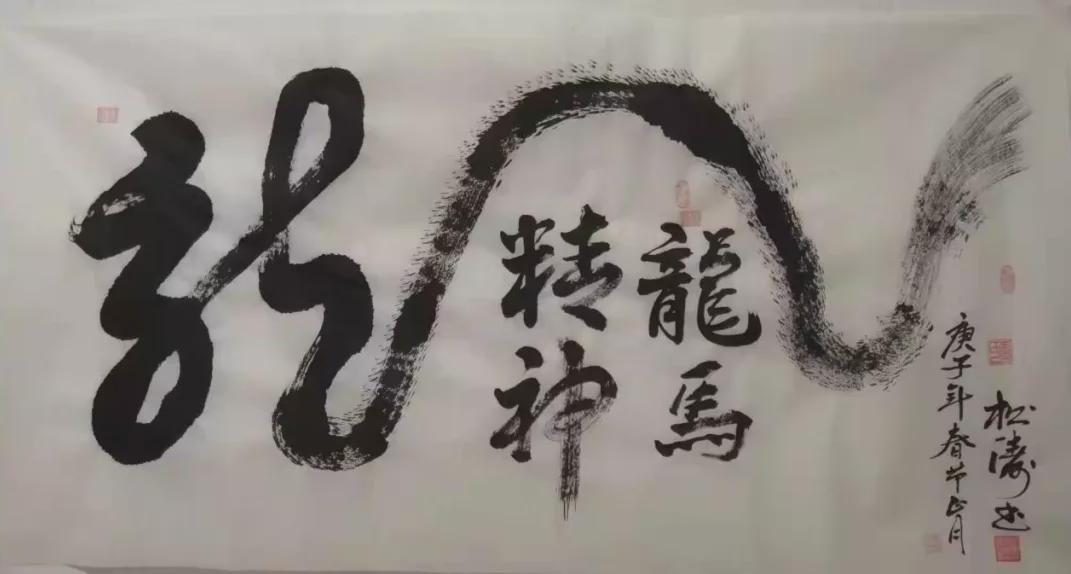 龍
龍馬
精神
庚子年春节正月
松濤书